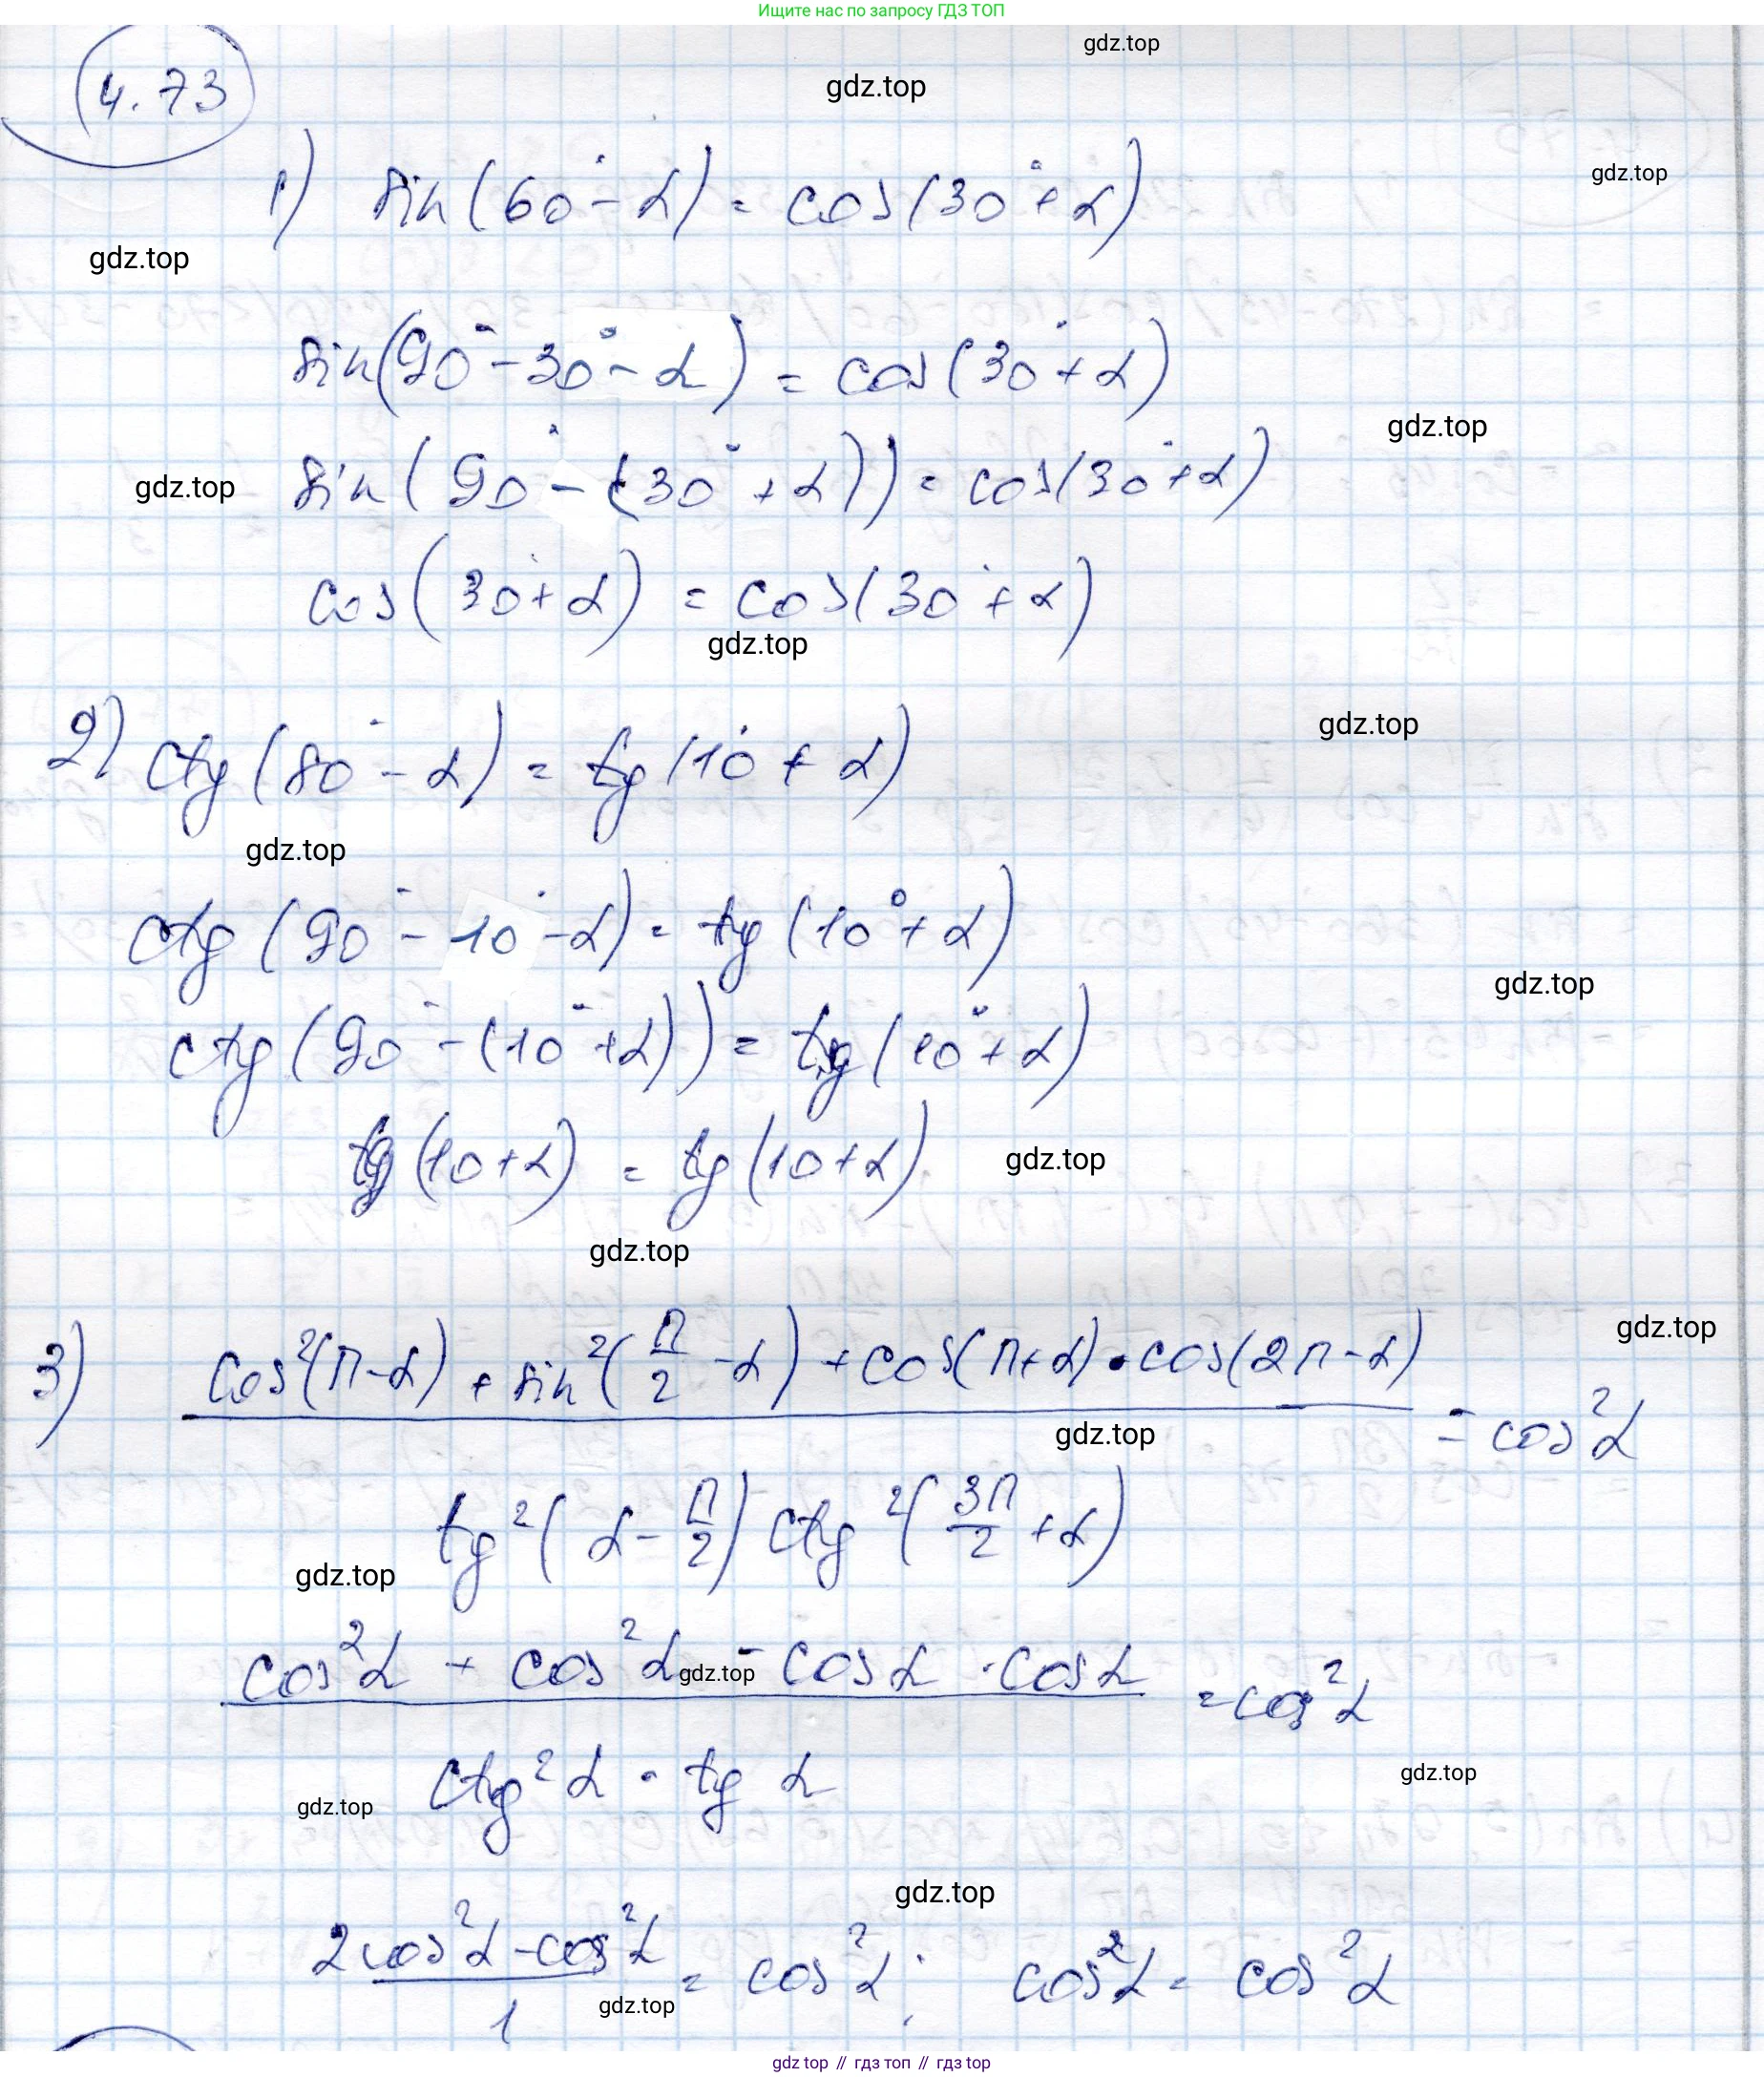 Ищите нас по запросу ГДЗ ТОП
gdz.top
4.73
gdz.top
1) sin(60°-α) = cos(30°+α)
gdz.top
gdz.top
sin(90°-30°-α) = cos(30°+α)
gdz.top
sin(90°-(30°+α)) = cos(30°+α)
gdz.top
cos(30°+α) = cos(30°+α)
gdz.top
2) ctg(80°-α) = tg(10°+α)
gdz.top
gdz.top
ctg(90°-10°-α) = tg(10°+α)
gdz.top
ctg(90°-(10°+α)) = tg(10°+α)
tg(10+α) = tg(10+α)
gdz.top
gdz.top
gdz.top
3) cos²(π-α) + sin²(π/2 -α) + cos(π+α)·cos(2π-α)
= cos²α
gdz.top
tg²(α-π/2) ctg²(3π/2 +α)
gdz.top
cos²α + cos²α - cosα · cosα
gdz.top
= cos²α
ctg²α · tg α
gdz.top
gdz.top
gdz.top
2cos²α - cos²α
= cos²α; cos²α = cos²α
1
gdz.top
gdz top // гдз топ // гдз top